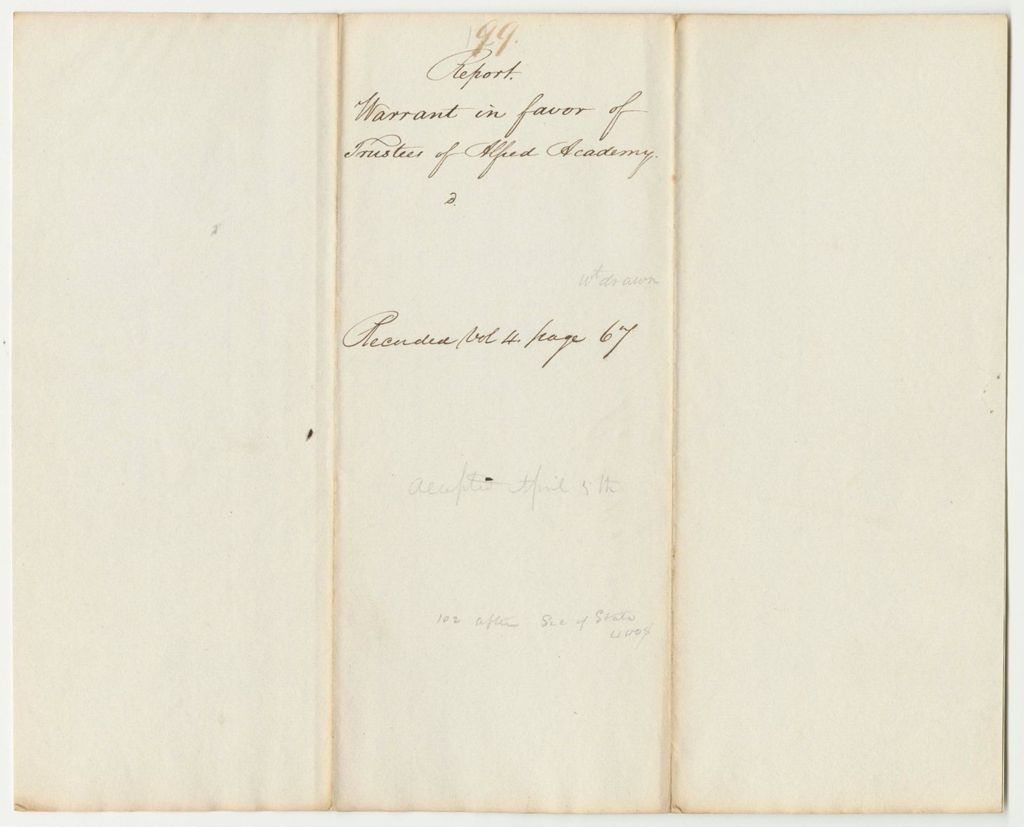 99.
Report.
Warrant in favor of
Trustees of Alfred Academy.
Wt drawn
Recorded Vol 4 page 67
Accepted April 5th
102 after Sec of State